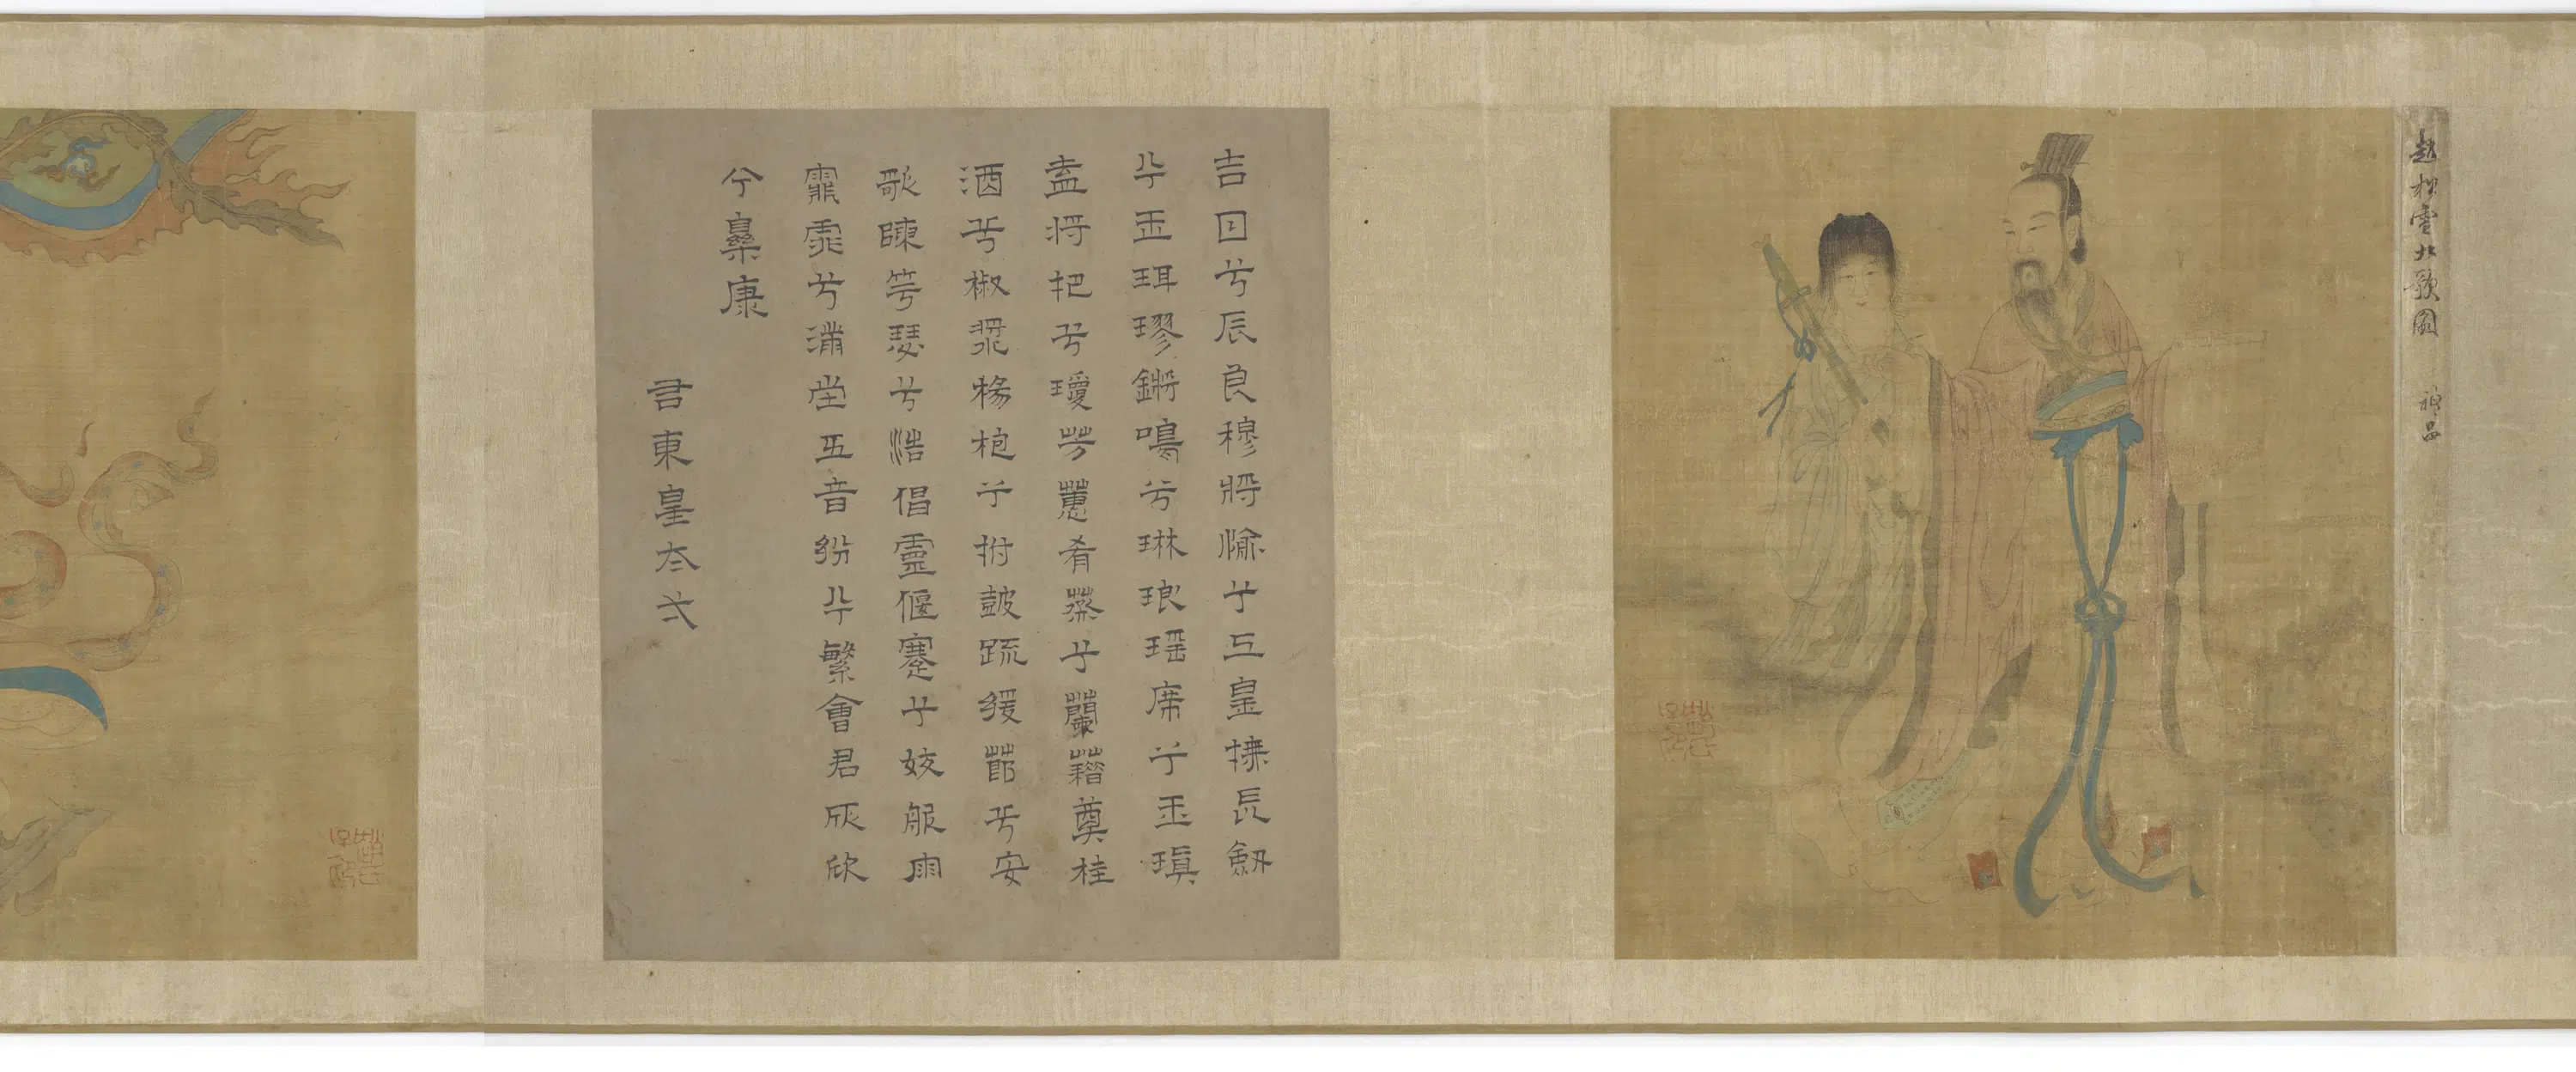 趙松雪九歌圖 神品
吉日兮辰良穆將愉兮上皇撫長劍
兮玉珥璆鏘鳴兮琳琅瑤席兮玉瑱
盍將把兮瓊芳蕙肴蒸兮蘭藉奠桂
酒兮椒漿揚枹兮拊鼓疏緩節兮安
歌陳竽瑟兮浩倡靈偃蹇兮姣服雨
霏霏兮滿堂五音紛兮繁會君欣欣
兮樂康
右東皇太弌